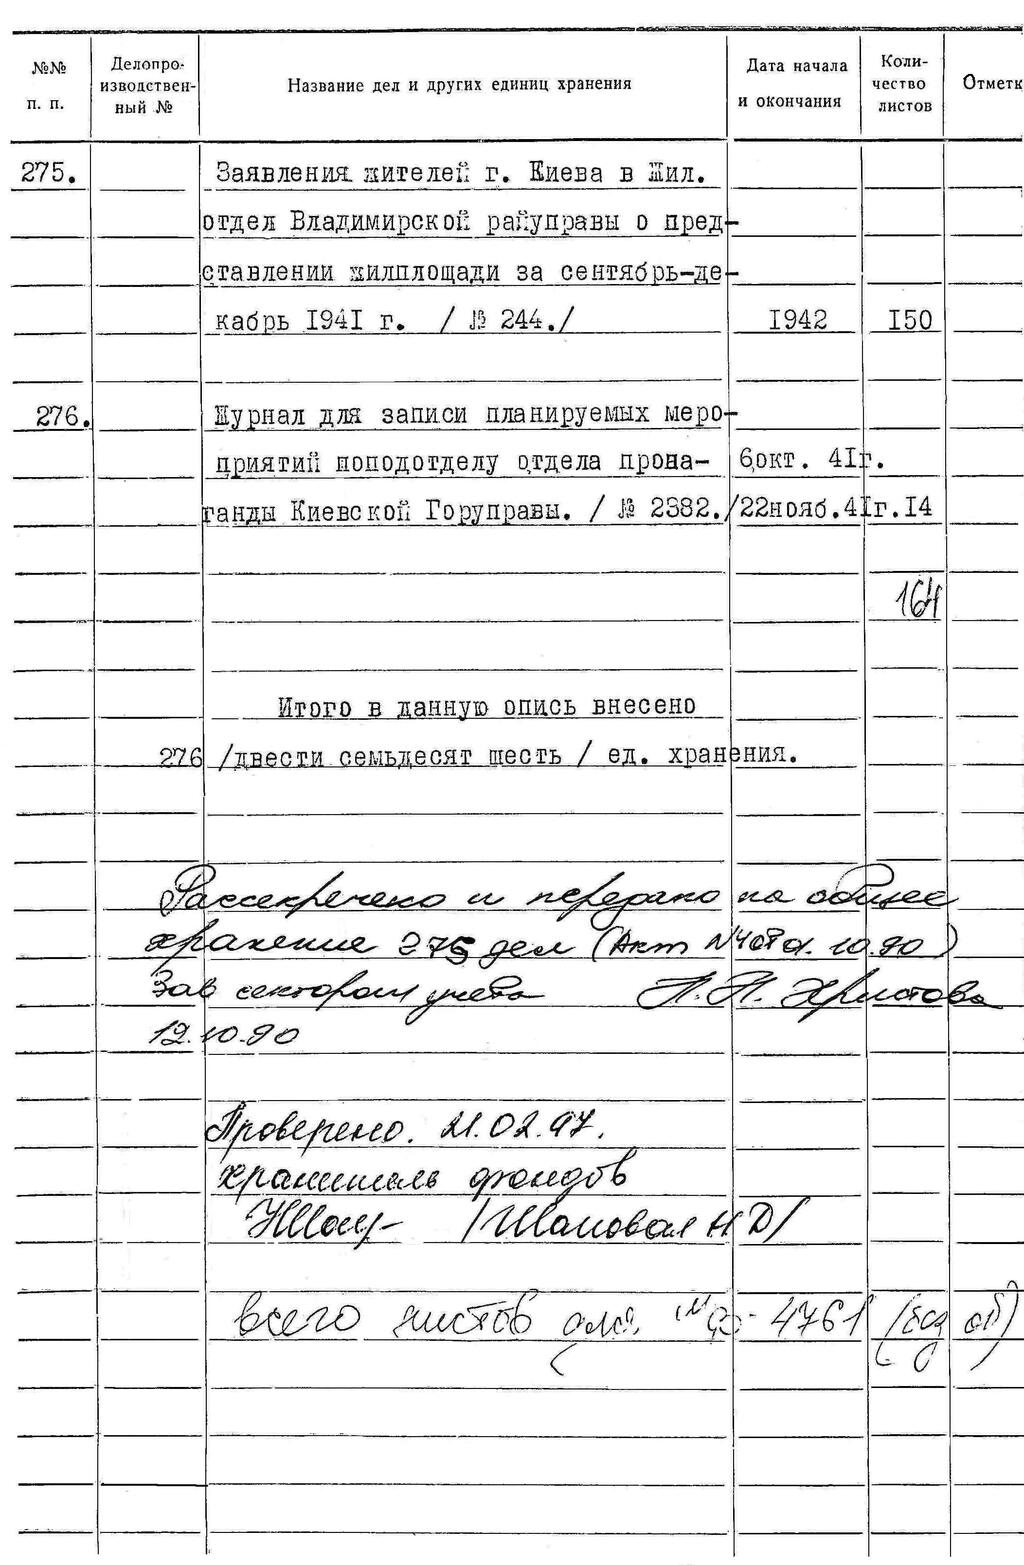 №№ п. п.
Делопро-
изводствен-
ный №
Название дел и других единиц хранения
Дата начала
и окончания
Коли-
чество
листов
Отметк
275. Заявления жителей г. Киева в Жил.
отдел Владимирской райуправы о пред-
ставлении жилплощади за сентябрь-де-
кабрь 1941 г. / № 244./ 1942 150
276. Журнал для записи планируемых меро-
приятий поподотделу отдела пропа- 6,окт. 41г.
ганды Киевской Горуправы. / № 2382./22нояб.41г.14
164
Итого в данную опись внесено
276 /двести семьдесят шесть / ед. хранения.
Рассекречено и передано на общее
хранение 275 дел (Акт №4 от 10.90)
Зав сектором учета Л.Н. Христова
12.10.90
Проверено. 21.02.97.
хранитель фондов
/Шаповал Н Д/
всего листов 4761 (без об)